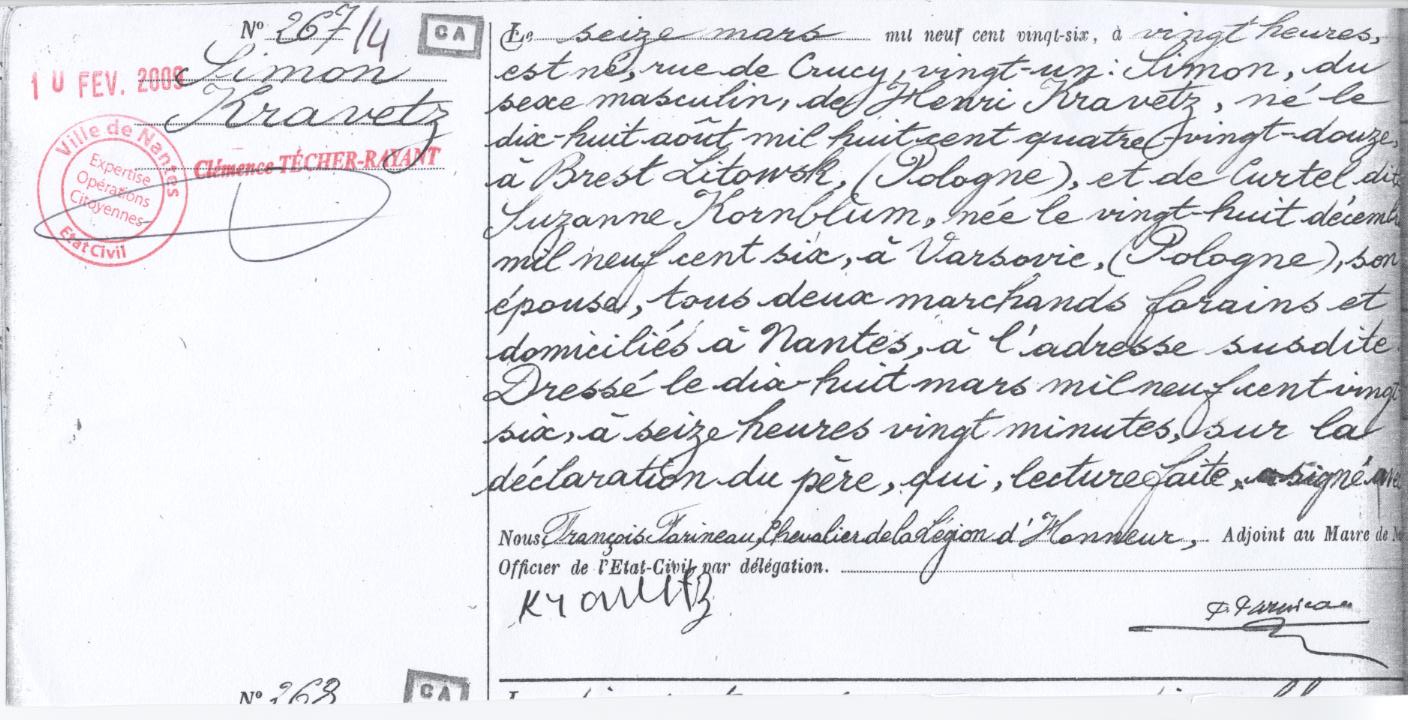 Nº 267/4
CA
10 FEV. 2009
Simon
Kravetz
Ville de Nantes
Expertise
Opérations
Citoyennes
Etat Civil
Clémence TÉCHER-RAYANT
Le seize mars mil neuf cent vingt-six, à vingt heures,
est né, rue de Crucy, vingt-un: Simon, du
sexe masculin, de Henri Kravetz, né le
dix-huit août mil huit cent quatre-vingt-douze,
à Brest Litowsk, (Pologne), et de Curtel dite
Suzanne Kornblum, née le vingt-huit décemb
mil neuf cent six, à Varsovie, (Pologne), son
épouse, tous deux marchands forains et
domiciliés à Nantes, à l'adresse susdite.
Dressé le dix-huit mars mil neuf cent vingt
six, à seize heures vingt minutes, sur la
déclaration du père, qui, lecture faite, a signé avec
Nous, François Farineau, Chevalier de la Légion d'Honneur, Adjoint au Maire de
Officier de l'Etat-Civil par délégation.
Kravetz
F. Farineau
Nº 268
CA